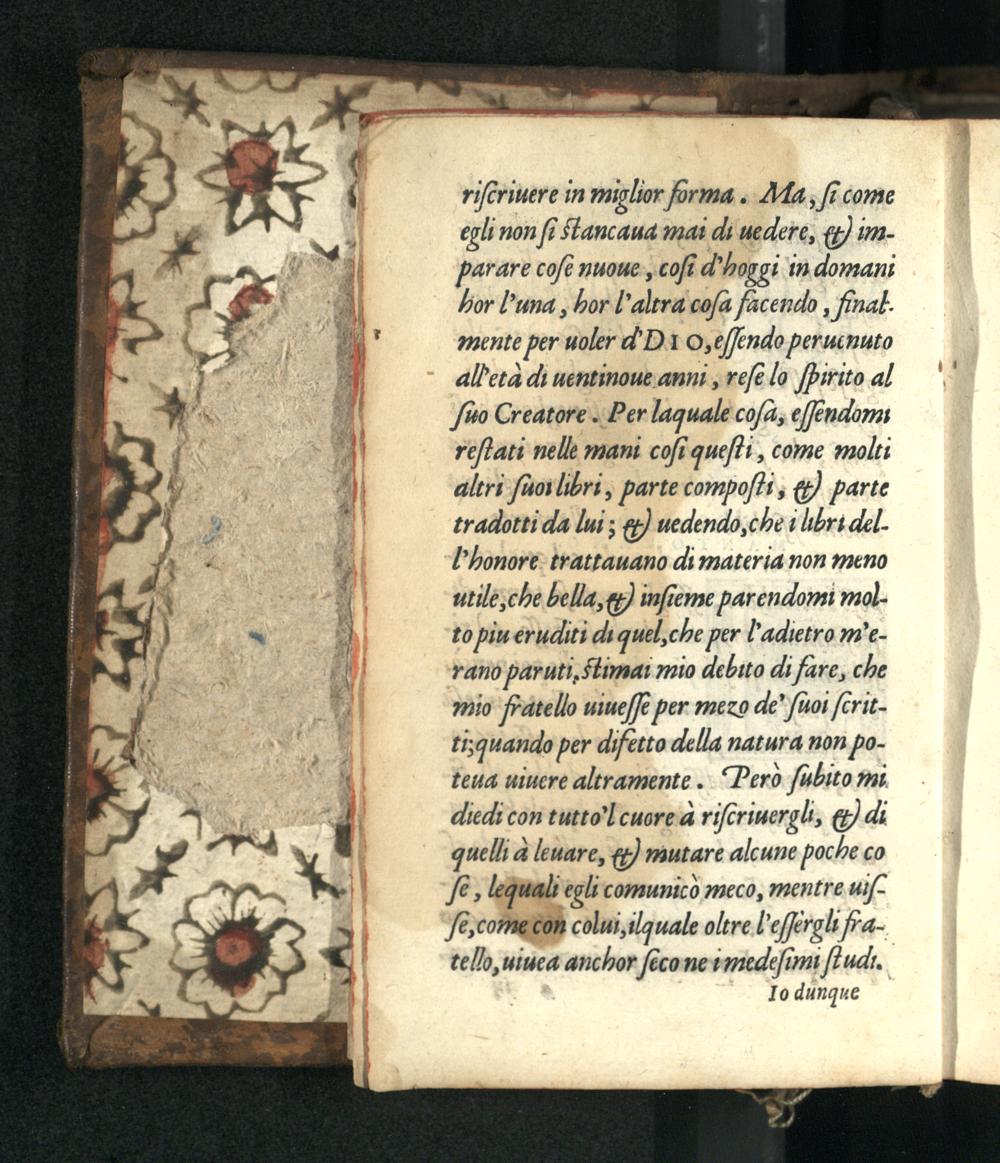 riſcriuere in miglior forma. Ma, ſi come
egli non ſi ſtancaua mai di uedere, & im-
parare coſe nuoue, coſi d'hoggi in domani
hor l'una, hor l'altra coſa facendo, final-
mente per uoler d'DIO, eſſendo peruenuto
all'età di uentinoue anni, reſe lo ſpirito al
ſuo Creatore. Per laquale coſa, eſſendomi
reſtati nelle mani coſi queſti, come molti
altri ſuoi libri, parte compoſti, & parte
tradotti da lui; & uedendo, che i libri del-
l'honore trattauano di materia non meno
utile, che bella, & inſieme parendomi mol-
to piu eruditi di quel, che per l'adietro m'e-
rano paruti, ſtimai mio debito di fare, che
mio fratello uiueſſe per mezo de' ſuoi ſcrit-
ti; quando per difetto della natura non po-
teua uiuere altramente. Però ſubito mi
diedi con tutto'l cuore à riſcriuergli, & di
quelli à leuare, & mutare alcune poche co
ſe, lequali egli comunicò meco, mentre uiſ-
ſe, come con colui, ilquale oltre l'eſſergli fra-
tello, uiuea anchor ſeco ne i medeſimi ſtudi.
Io dunque